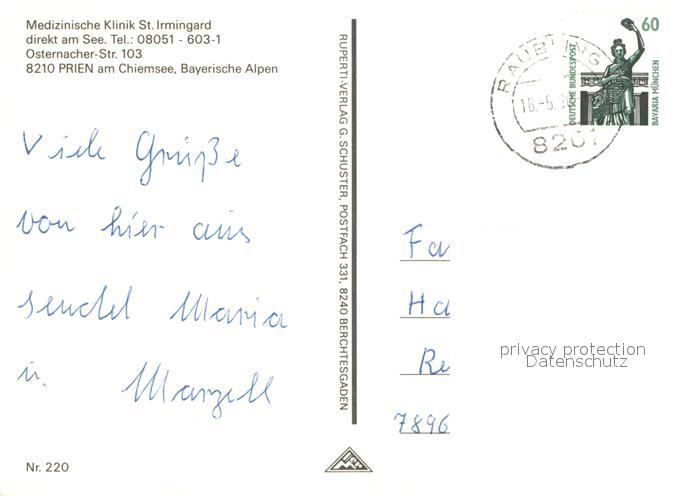 Medizinische Klinik St. Irmingard
direkt am See. Tel.: 08051 - 603-1
Osternacher-Str. 103
8210 PRIEN am Chiemsee, Bayerische Alpen
Viele Grüße
von hier aus
sendet Maria
u. Marzell
Nr. 220
RUPERTI-VERLAG G. SCHUSTER, POSTFACH 331, 8240 BERCHTESGADEN
RAUBLING
16.-5.
8201
60
DEUTSCHE BUNDESPOST
BAVARIA MÜNCHEN
Fa
Ha
Re
7896
privacy protection
Datenschutz